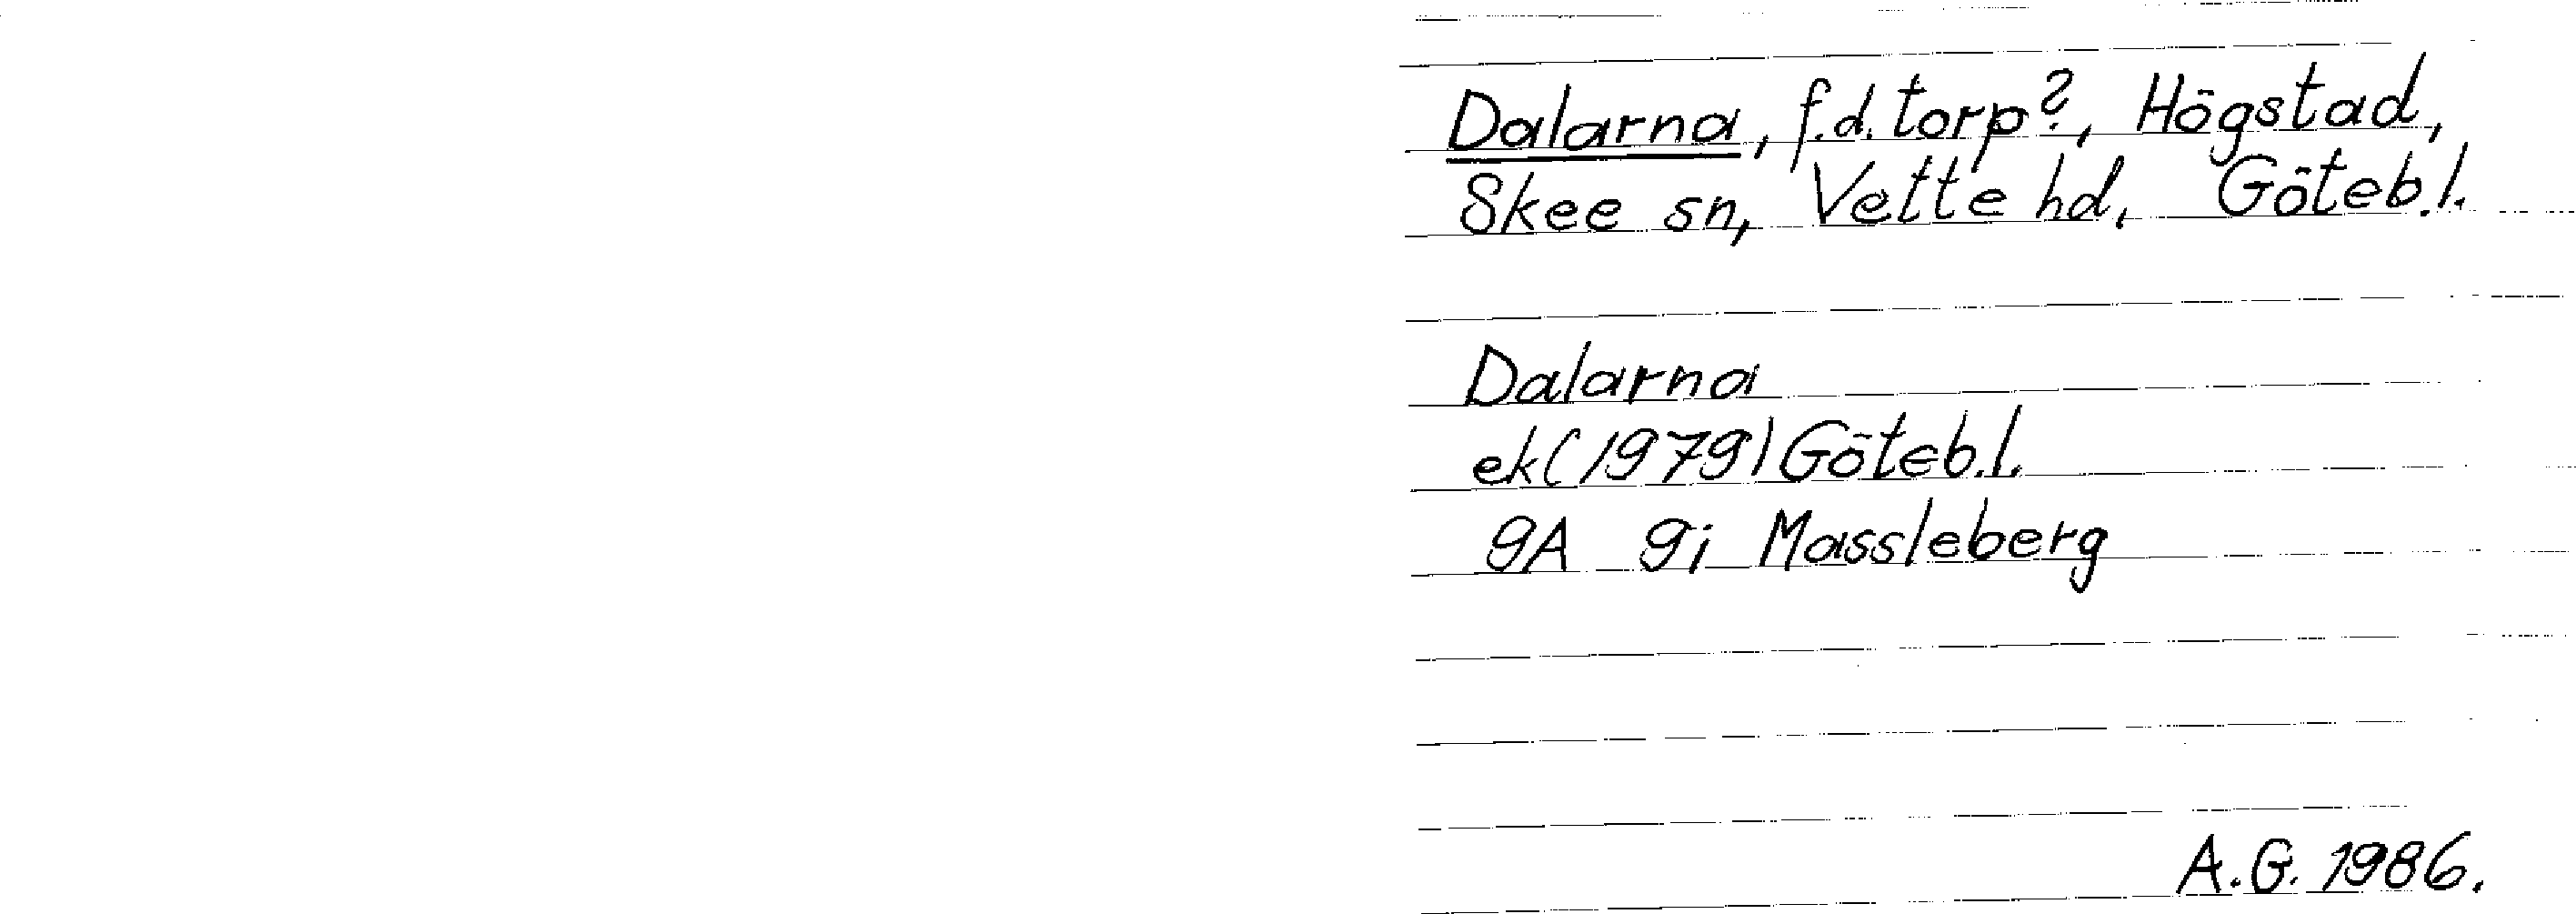 Dalarna, f.d. torp?, Högstad,
Skee sn, Vette hd, Göteb.l.
Dalarna
ek(1979)Göteb.l.
9A 9i Massleberg
A.G. 1986.